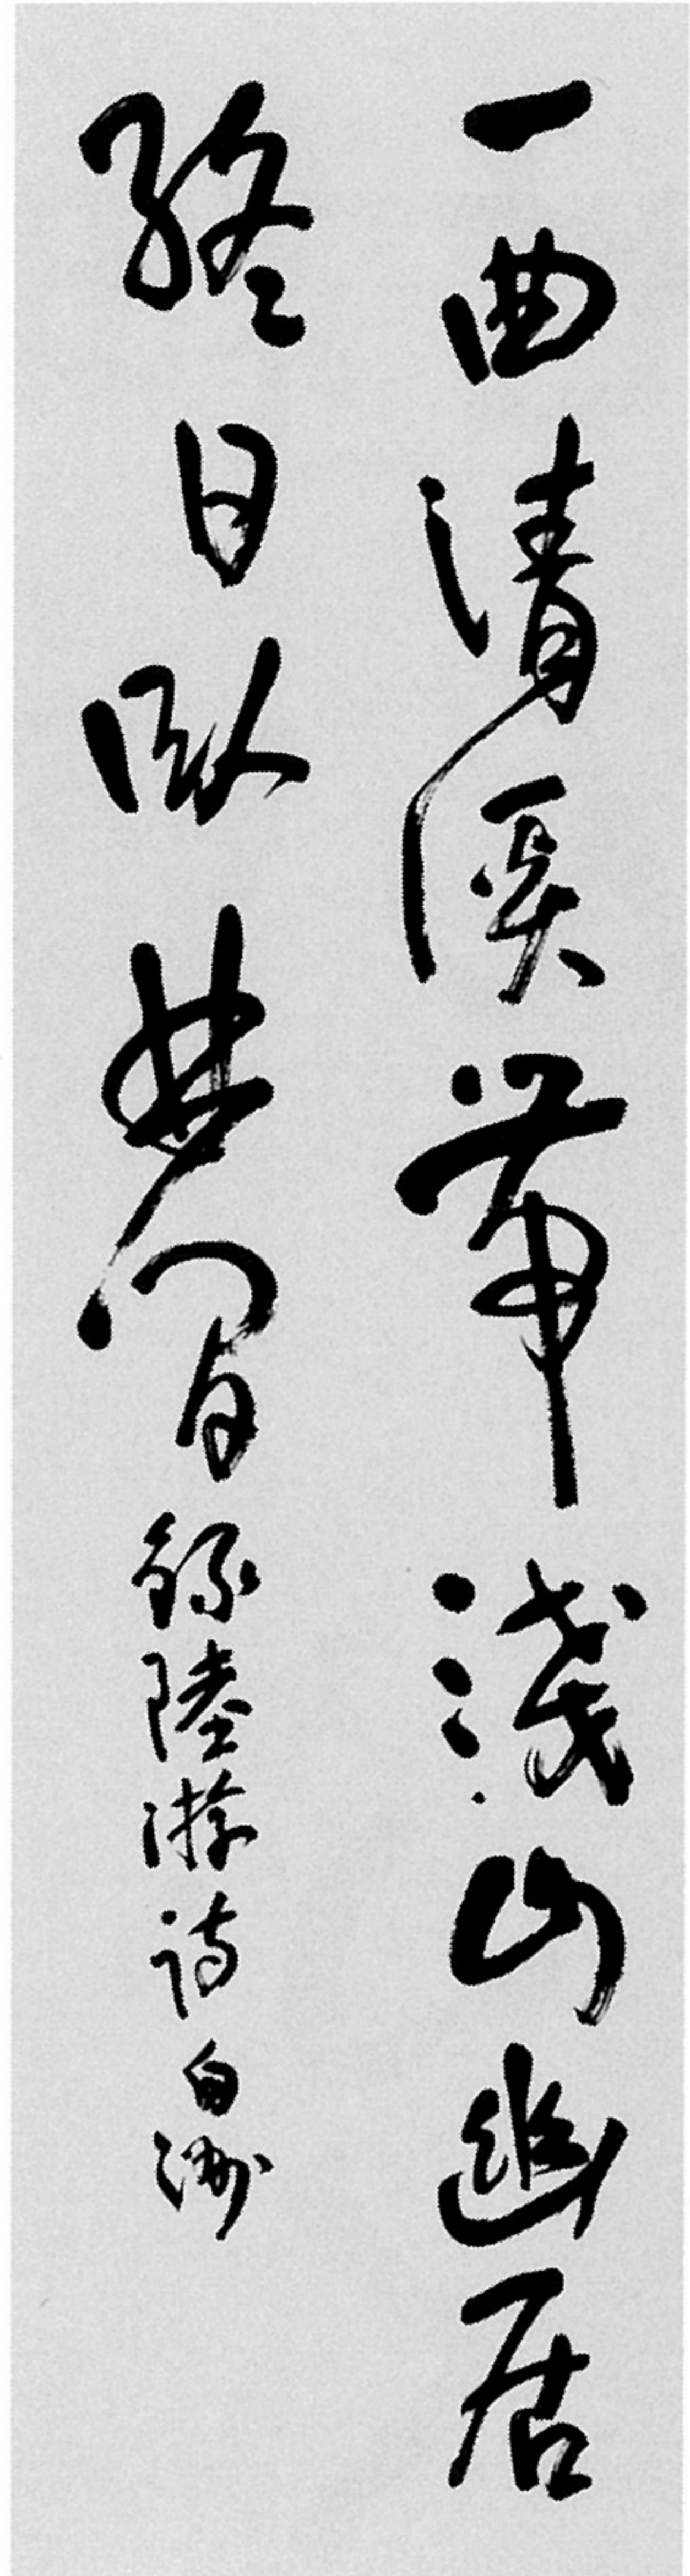 一曲清溪帶淺山幽居
終日臥林間錄陸游詩白洲